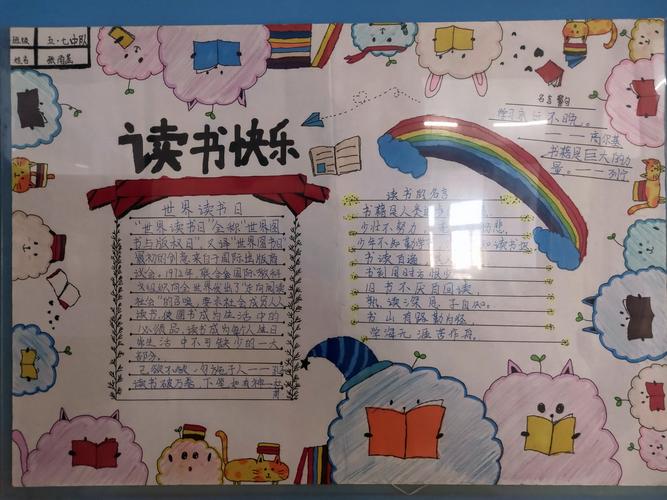 班级 五·七中队
姓名
读书快乐
世界读书日
"世界读书日"全称"世界图
书与版权日",又译"世界图书日"
最初的创意来自于国际出版商
议会。1972年,联合国国际教科
文组织向全世界发出了"走向阅读
社会"的召唤,要求社会成员人人
读书,使图书成为生活中的
必须品,读书成为每个人生日
常生活中不可缺少的一大
部分。
己欲不欲,勿施于人——孔
读书破万卷,下笔如有神—杜
甫
名言警句
学习 不晚。
——高尔基
书籍是巨大的力
量。——列宁
读书的名言
书籍是人类
少壮不努力 悲
少年不知勤学 读书迟
书读百遍
书到用时方恨少
旧书不厌百回读,
熟读深思子自知。
书山有路勤为径,
学海无涯苦作舟。